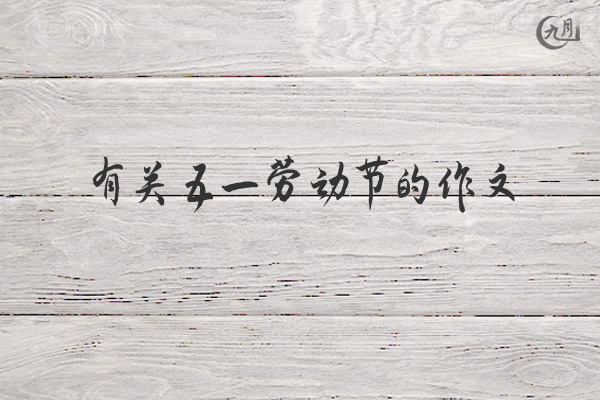 九月
有关五一劳动节的作文